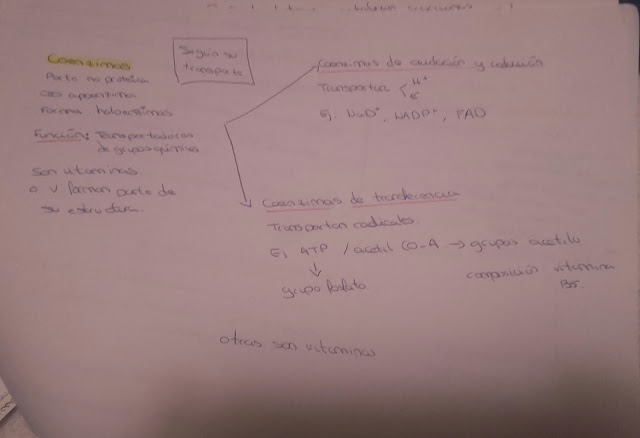 Coenzimas
Parte no proteica
apoenzima
Forma holoenzimas
Función: Transportadoras
de grupos químicos
Son vitaminas
o v forman parte de
su estructura.
Según su
transporte
Coenzimas de oxidación y reducción
Transportan H+
e-
Ej. NAD+, NADP+, FAD
Coenzimas de transferencia
Transportan radicales.
Ej ATP / acetil CO-A → grupos acetilo
↓
grupo fosfato
composición vitamina
B5.
otras son vitaminas